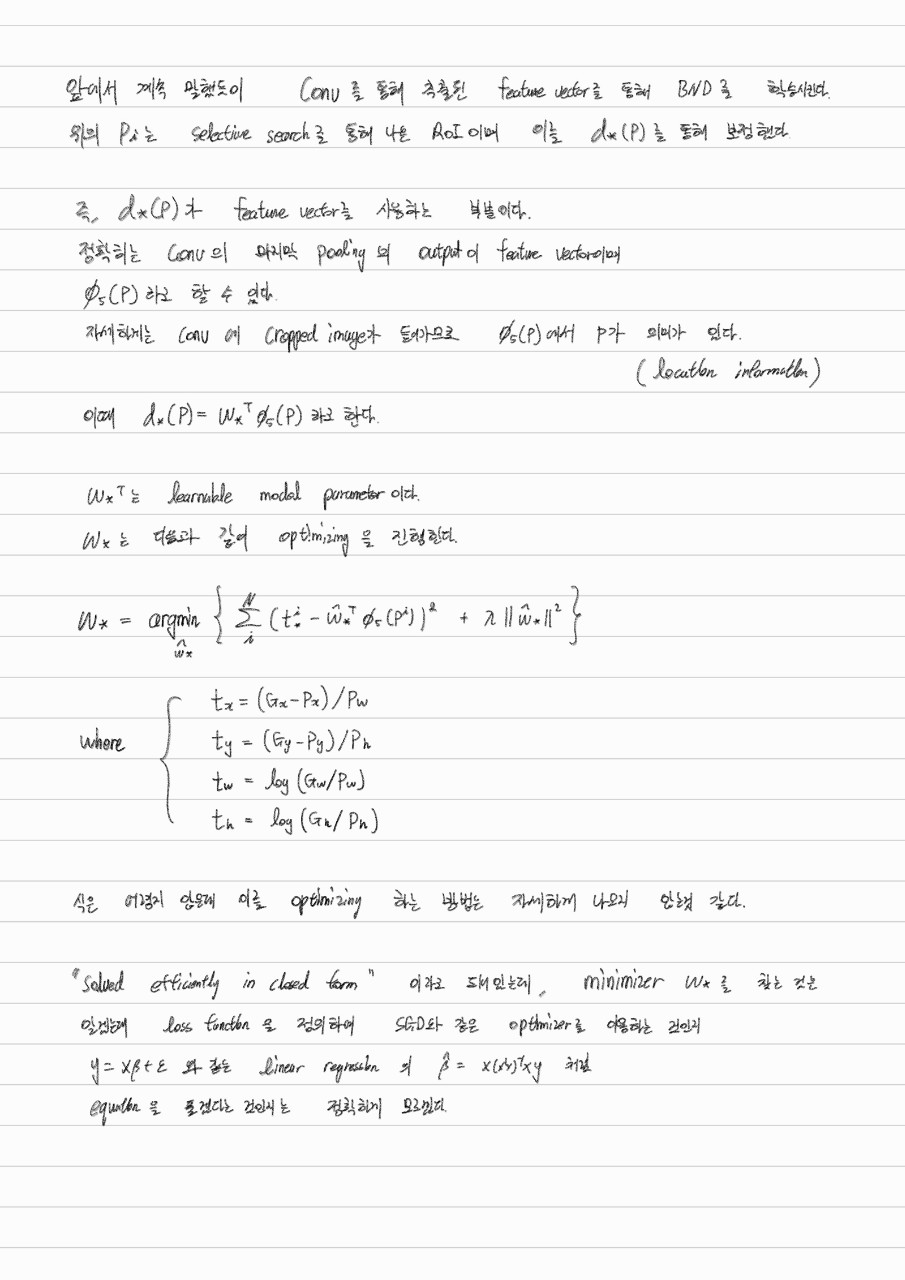 앞에서 계속 말했듯이 Conv를 통해 추출된 feature vector를 통해 BND를 학습시킨다.
위의 Pi는 selective search를 통해 나온 RoI이며 이를 d⋆(P)를 통해 보정한다.
즉, d⋆(P)가 feature vector를 사용하는 부분이다.
정확히는 Conv의 마지막 pooling의 output이 feature vector이며
ϕ₅(P)라고 할 수 있다.
자세하게는 Conv에 cropped image가 들어가므로 ϕ₅(P)에서 P가 의미가 있다.
(location information)
이때 d⋆(P) = W⋆ᵀϕ₅(P) 라고 한다.
W⋆ᵀ는 learnable model parameter이다.
W⋆는 다음과 같이 optimizing을 진행한다.
W⋆ = argmin_ŵ⋆ { Σ_i^N (t⋆ⁱ - ŵ⋆ᵀϕ₅(Pⁱ))² + λ||ŵ⋆||² }
where { tx = (Gx-Px)/Pw
ty = (Gy-Py)/Ph
tw = log(Gw/Pw)
th = log(Gh/Ph)
식은 어렵지 않은데 이를 optimizing 하는 방법은 자세하게 나오지 않는것 같다.
"Solved efficiently in closed form" 이라고 돼 있는데, minimizer W⋆를 찾는 것은
알겠는데 loss function을 정의하여 SGD와 같은 optimizer로 이용하는 것인지
y = xβ + ε 와 같은 linear regression의 β̂ = x(x'x)⁻¹xy 처럼
equation을 풀겠다는 것인지는 정확하게 모르겠다.